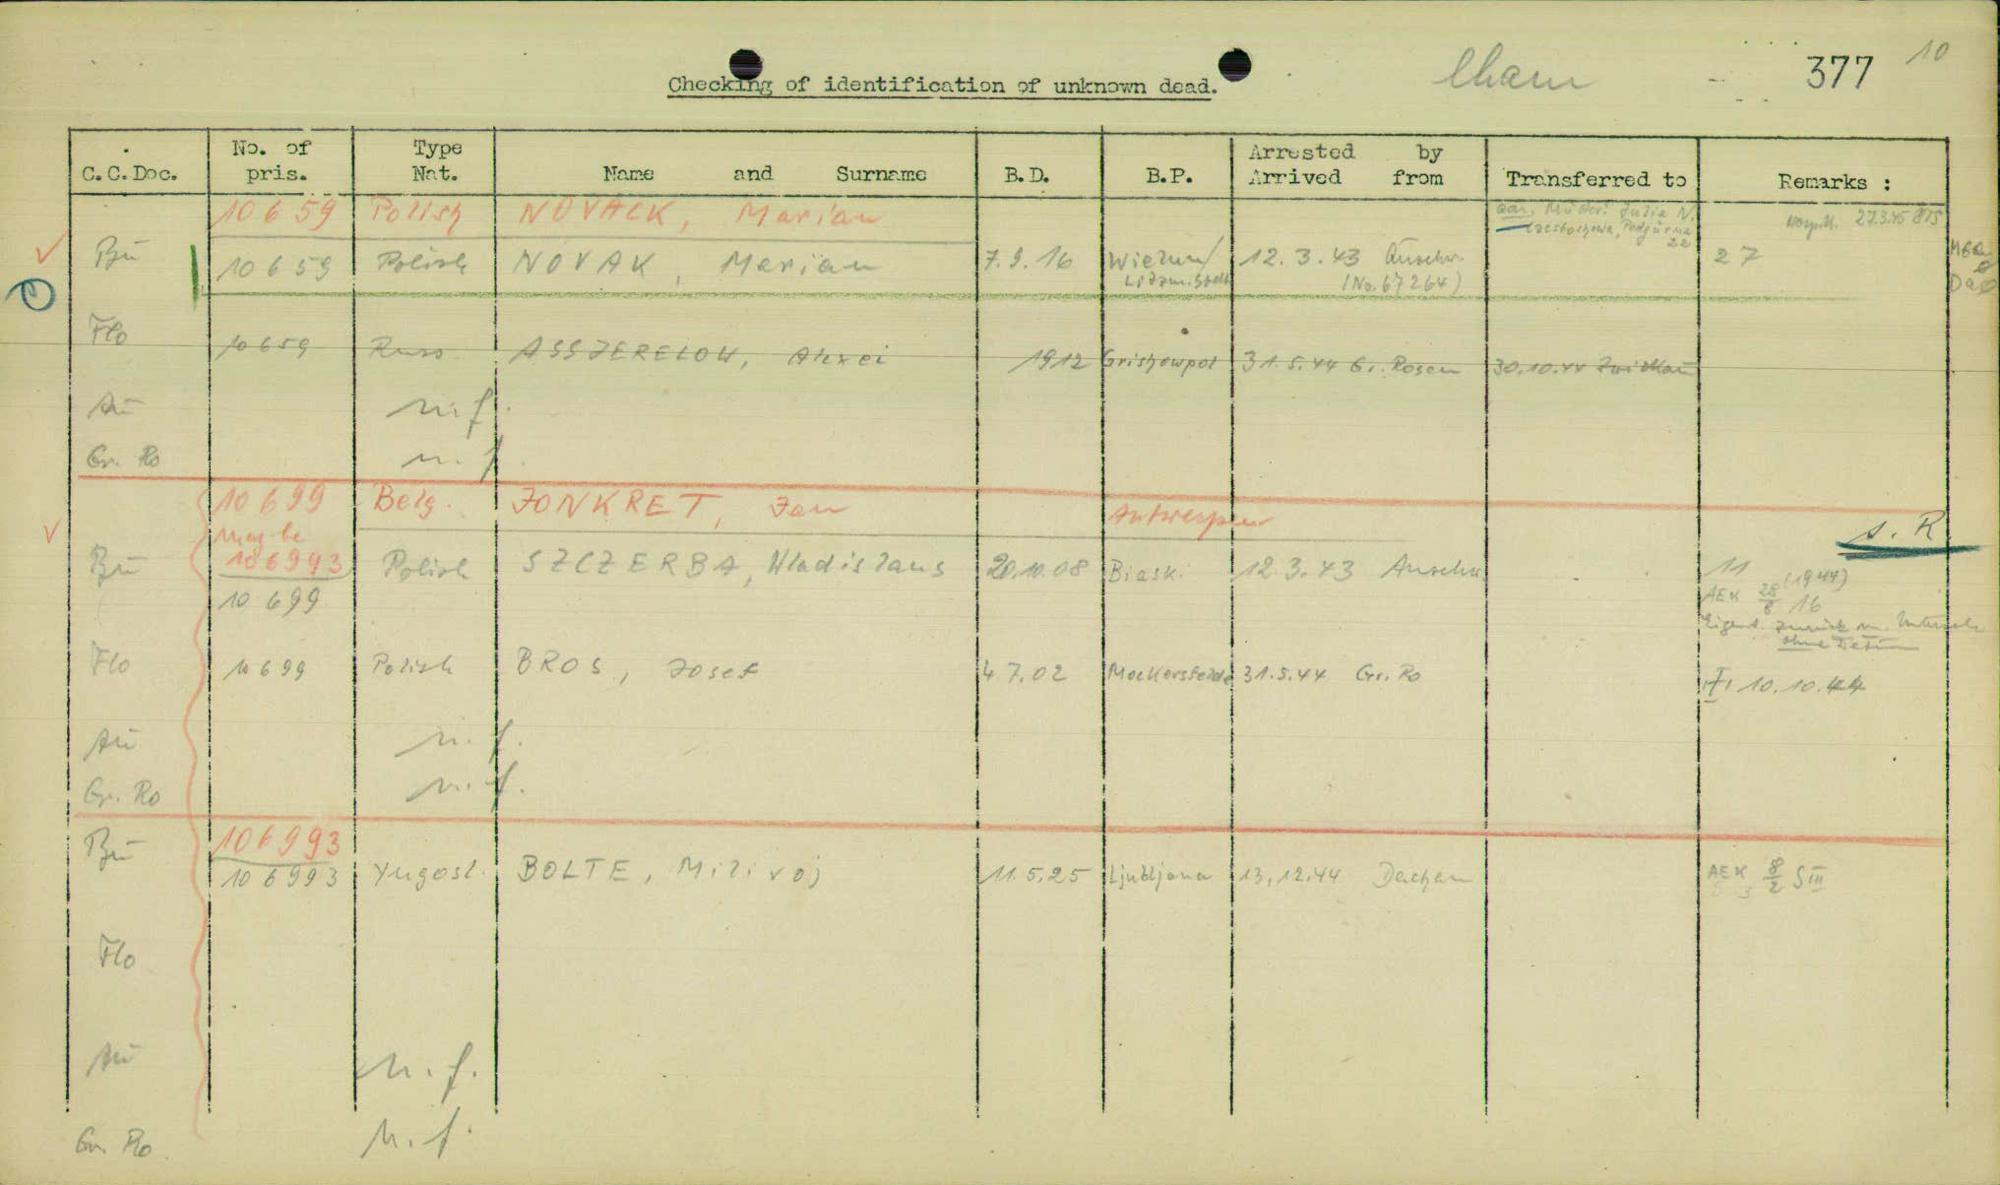 Cham 377 10
Checking of identification of unknown dead.
C.C.Doc. No. of pris. Type Nat. Name and Surname B.D. B.P. Arrested by Arrived from Transferred to Remarks :
10659 Polish NOVACK, Marian Julia N. 27.3.45
Bu 10659 Polish NOVAK, Marian 7.9.16 Wielun/ 12.3.43 Auschw. 27
(No. 67264)
Flo 10659 Russ ASSJERELOW, Alexei 1912 Grishowpol 31.5.44 Gr. Rosen 30.10.44 Zwickau
Au n.f.
Gr. Ro n.f.
10699 Belg. JONKRET, Jan Antwerpen s. R
may be
Bu 106993 Polish SZCZERBA, Wladislaus 20.10.08 Biask. 12.3.43 Auschw. 11
10699 AEK 28/8 (1944) 16
ohne Datum
Flo 10699 Polish BROS, Josef 4.7.02 Mockersfelde 31.5.44 Gr. Ro 10.10.44
Au n.f.
Gr. Ro n.f.
Bu 106993
106993 Yugosl. BOLTE, Milivoj 11.5.25 Ljubljana 13.12.44 Dachau AEK 8/2 S III
Flo
Au n.f.
Gr. Ro n.f.